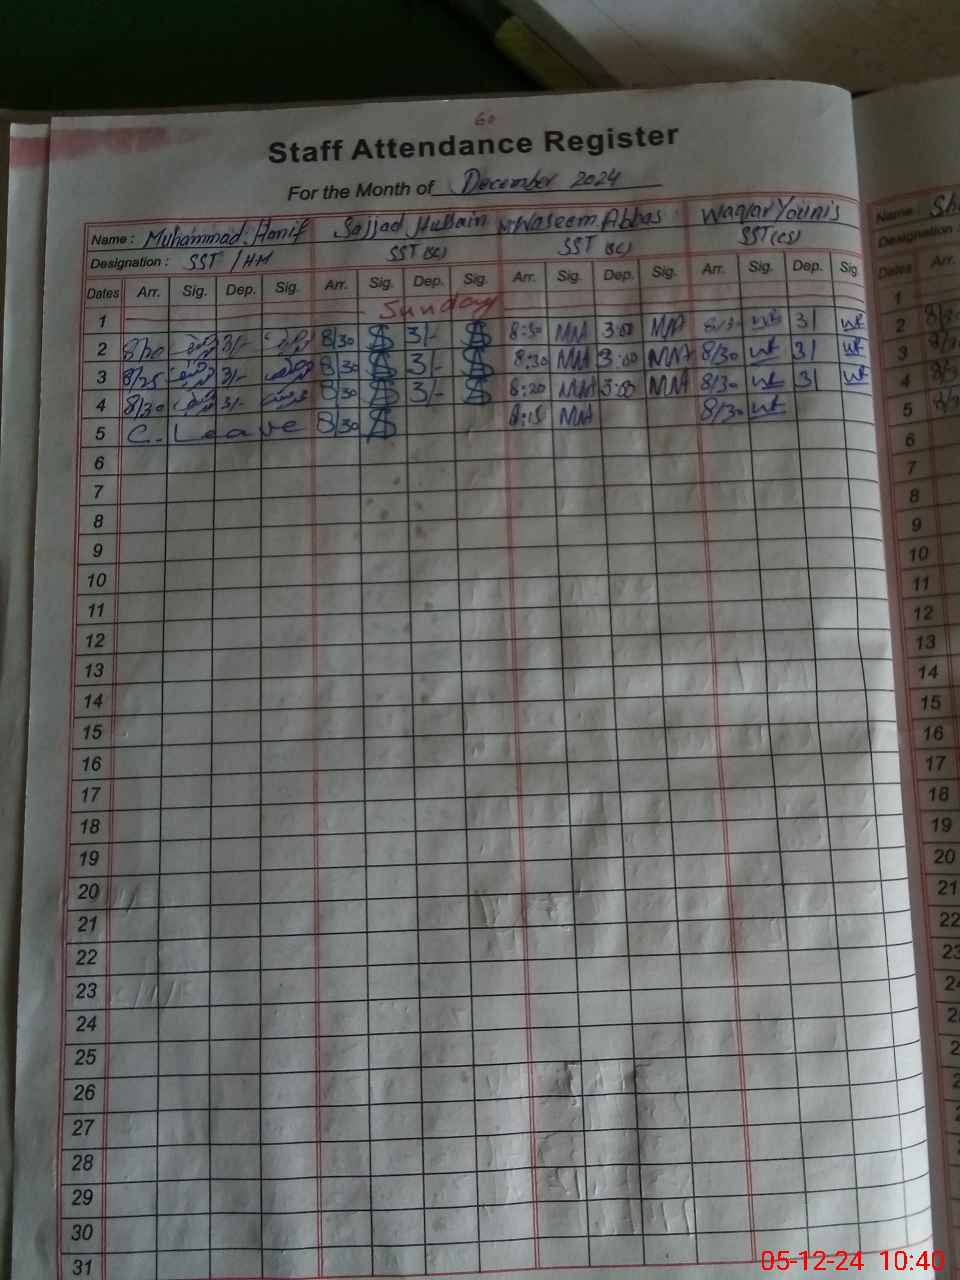 60
Staff Attendance Register
For the Month of December 2024
Name : Muhammad Hanif Sajjad Hussain M. Waseem Abbas Waqar Younis
Designation : SST / HM SST (SC) SST (SC) SST (CS)
Dates Arr. Sig. Dep. Sig. Arr. Sig. Dep. Sig. Arr. Sig. Dep. Sig. Arr. Sig. Dep. Sig.
1 Sunday
2 8/20 3/- 8/30 3/- 8:30 3:00 8/30 3/
3 8/25 3/- 8/30 3/- 8:30 3:00 8/30 3/
4 8/30 3/- 8/30 3/- 8:20 3:00 8/30 3/
5 C. Leave 8/30 8:15 8/30
6
7
8
9
10
11
12
13
14
15
16
17
18
19
20
21
22
23
24
25
26
27
28
29
30
31
Name : Sh
Designation
Dates Arr.
1
2
3
4
5
6
7
8
9
10
11
12
13
14
15
16
17
18
19
20
21
22
05-12-24 10:40